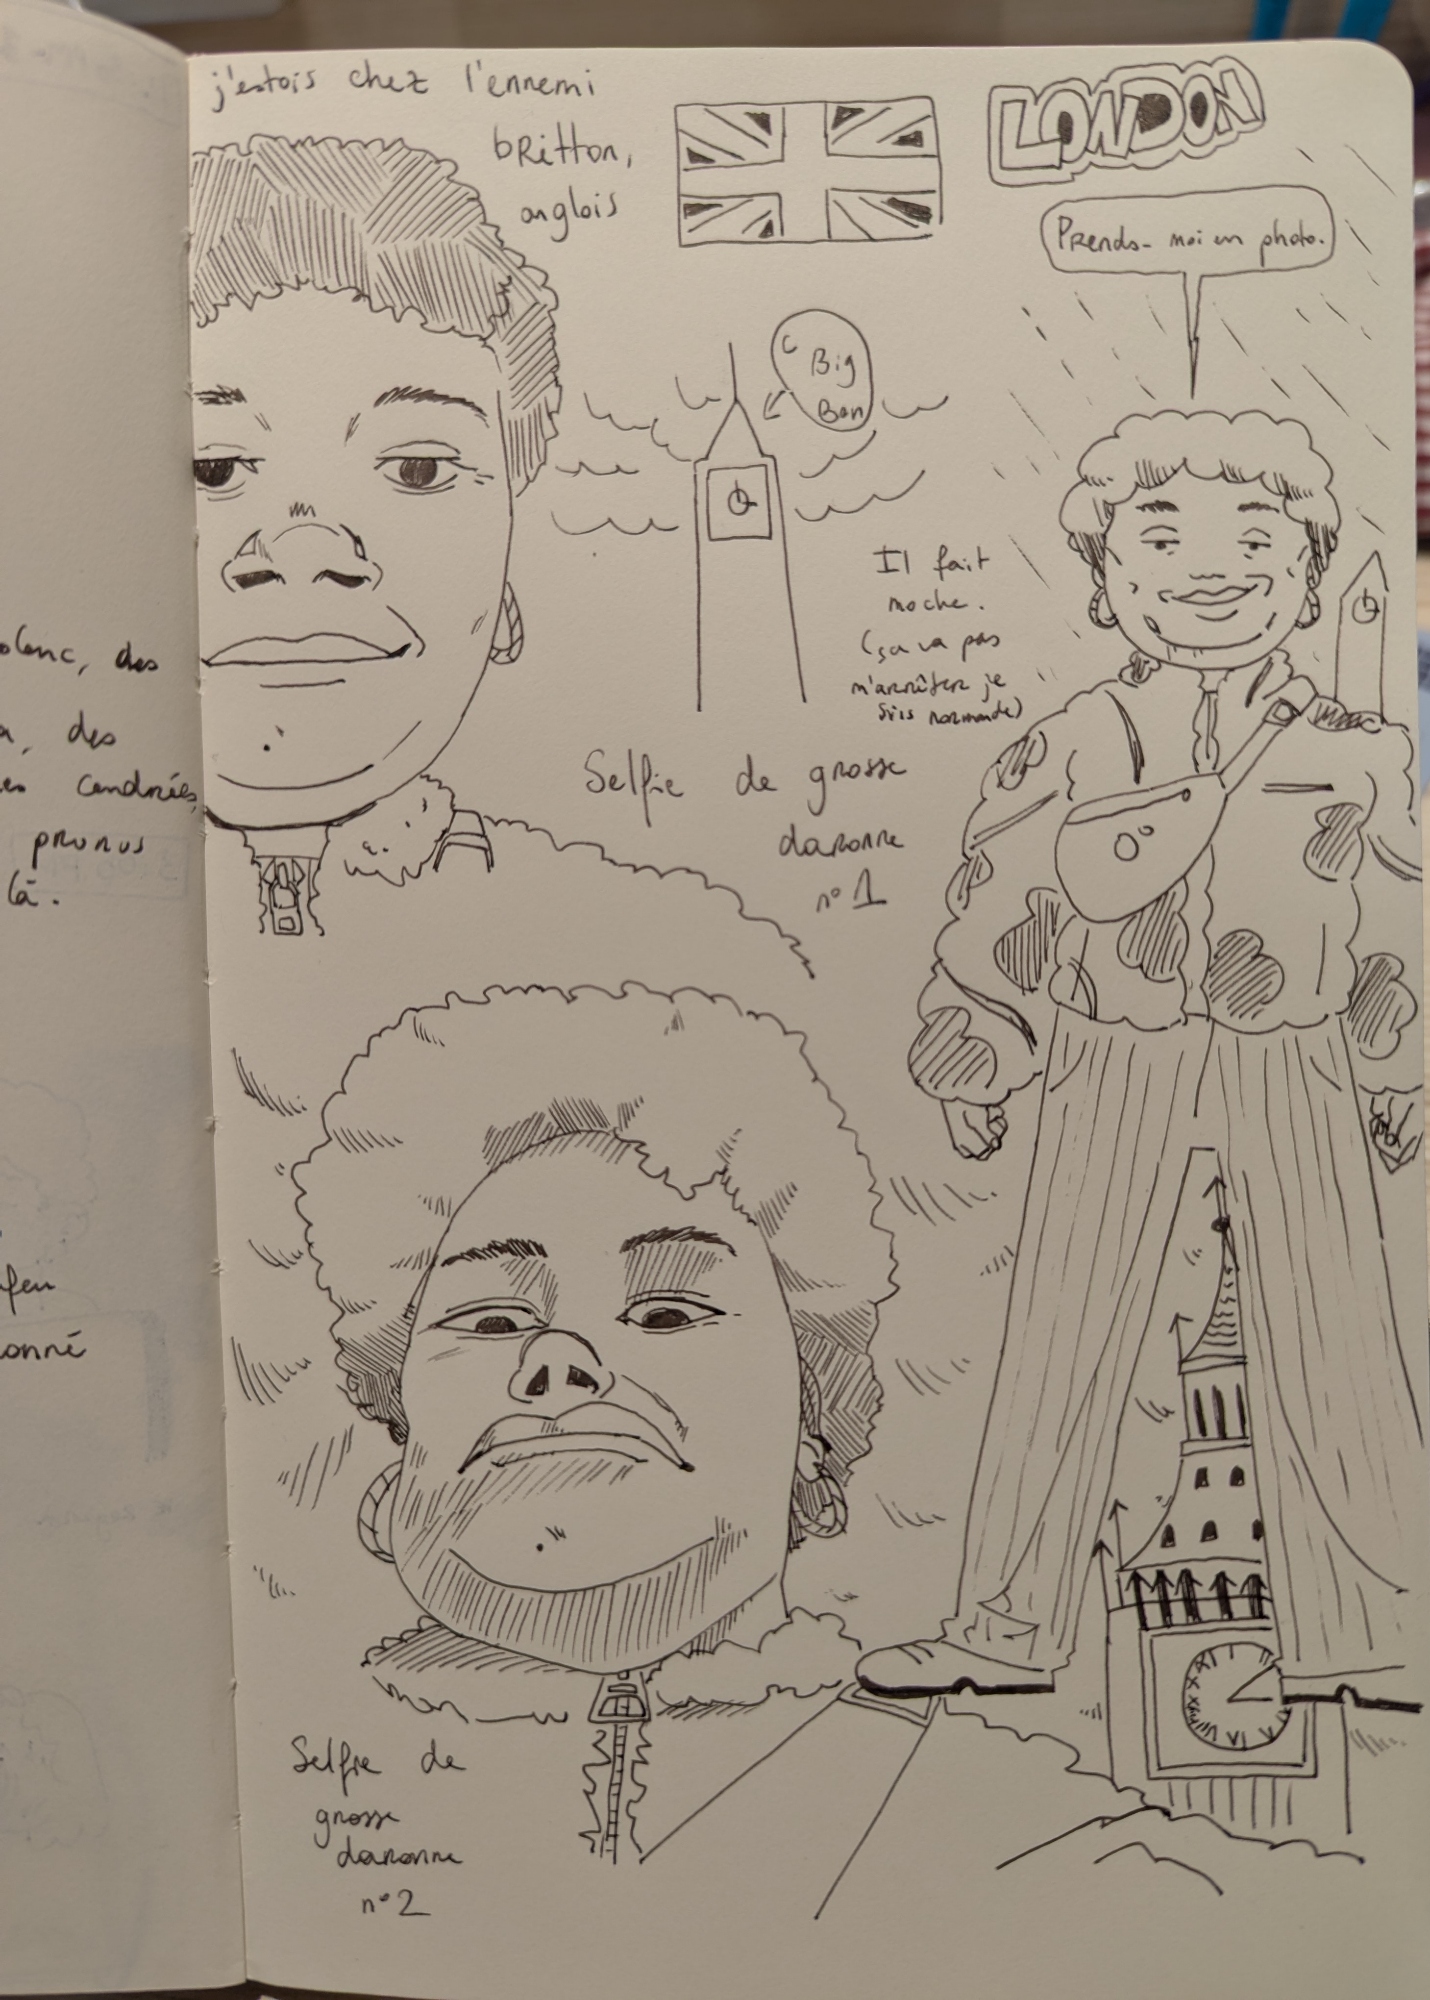 blanc, des
des
cendrées,
prunus
là.
feu
donné
j'estois chez l'ennemi
britton,
anglois
LONDON
Prends-moi en photo.
C Big
Ben
Il fait
moche.
(ça va pas
m'arrêter je
suis normande)
Selfie de grosse
daronne
n°1
Selfie de
grosse
daronne
n°2